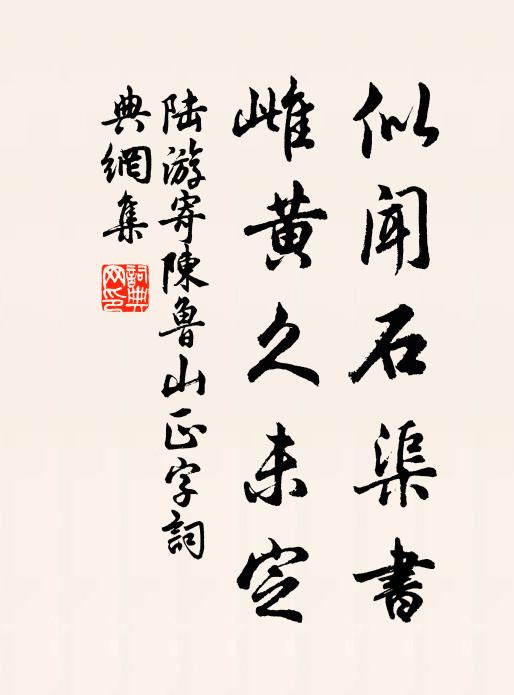 似闻石渠書
雌黄久未定
陆游寄陳魯山正字詞
典網集
詞典
网印